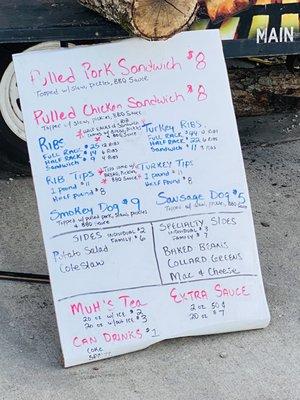 MAIN
Pulled Pork Sandwich $8
Topped w/ slaw, pickles, BBQ Sauce
Pulled Chicken Sandwich $8
Topped w/ slaw, pickles, BBQ Sauce
Ribs
Full Rack $25 12 Ribs
Half Rack $14 6 Ribs
Sandwich $9 4 Ribs
Turkey Ribs
Full Rack $44
Half Rack $22
Sandwich $11
Rib Tips
1 Pound $11
Half Pound $8
Turkey Tips
1 Pound $11
Half Pound $8
Smokey Dog $9
Topped w/ pulled pork, slaw, pickles
& BBQ Sauce
Sausage Dog $5
Sides Individual $2
Family $6
Potato Salad
Cole Slaw
Specialty Sides
Individual $3
Family $7
Baked Beans
Collard Greens
Mac & Cheese
Muh's Tea
20 oz w/ ice $2
20 oz w/out ice $3
Can Drinks $1
Coke
Extra Sauce
2 oz 50¢
20 oz $7